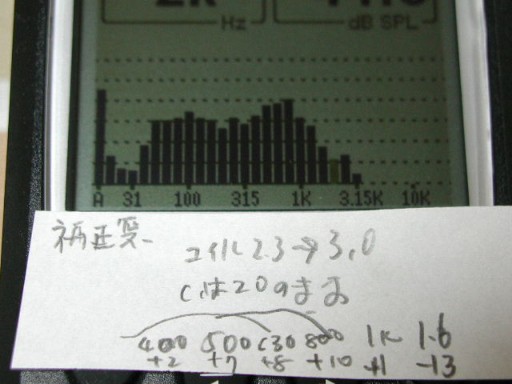 Hz dB SPL
A 31 100 315 1K 3.15K 10K
補正変
コイル 2.3→3.0
Cは20のまま
400 500 630 800 1K 1.6
+2 +7 +8 +10 +1 -13